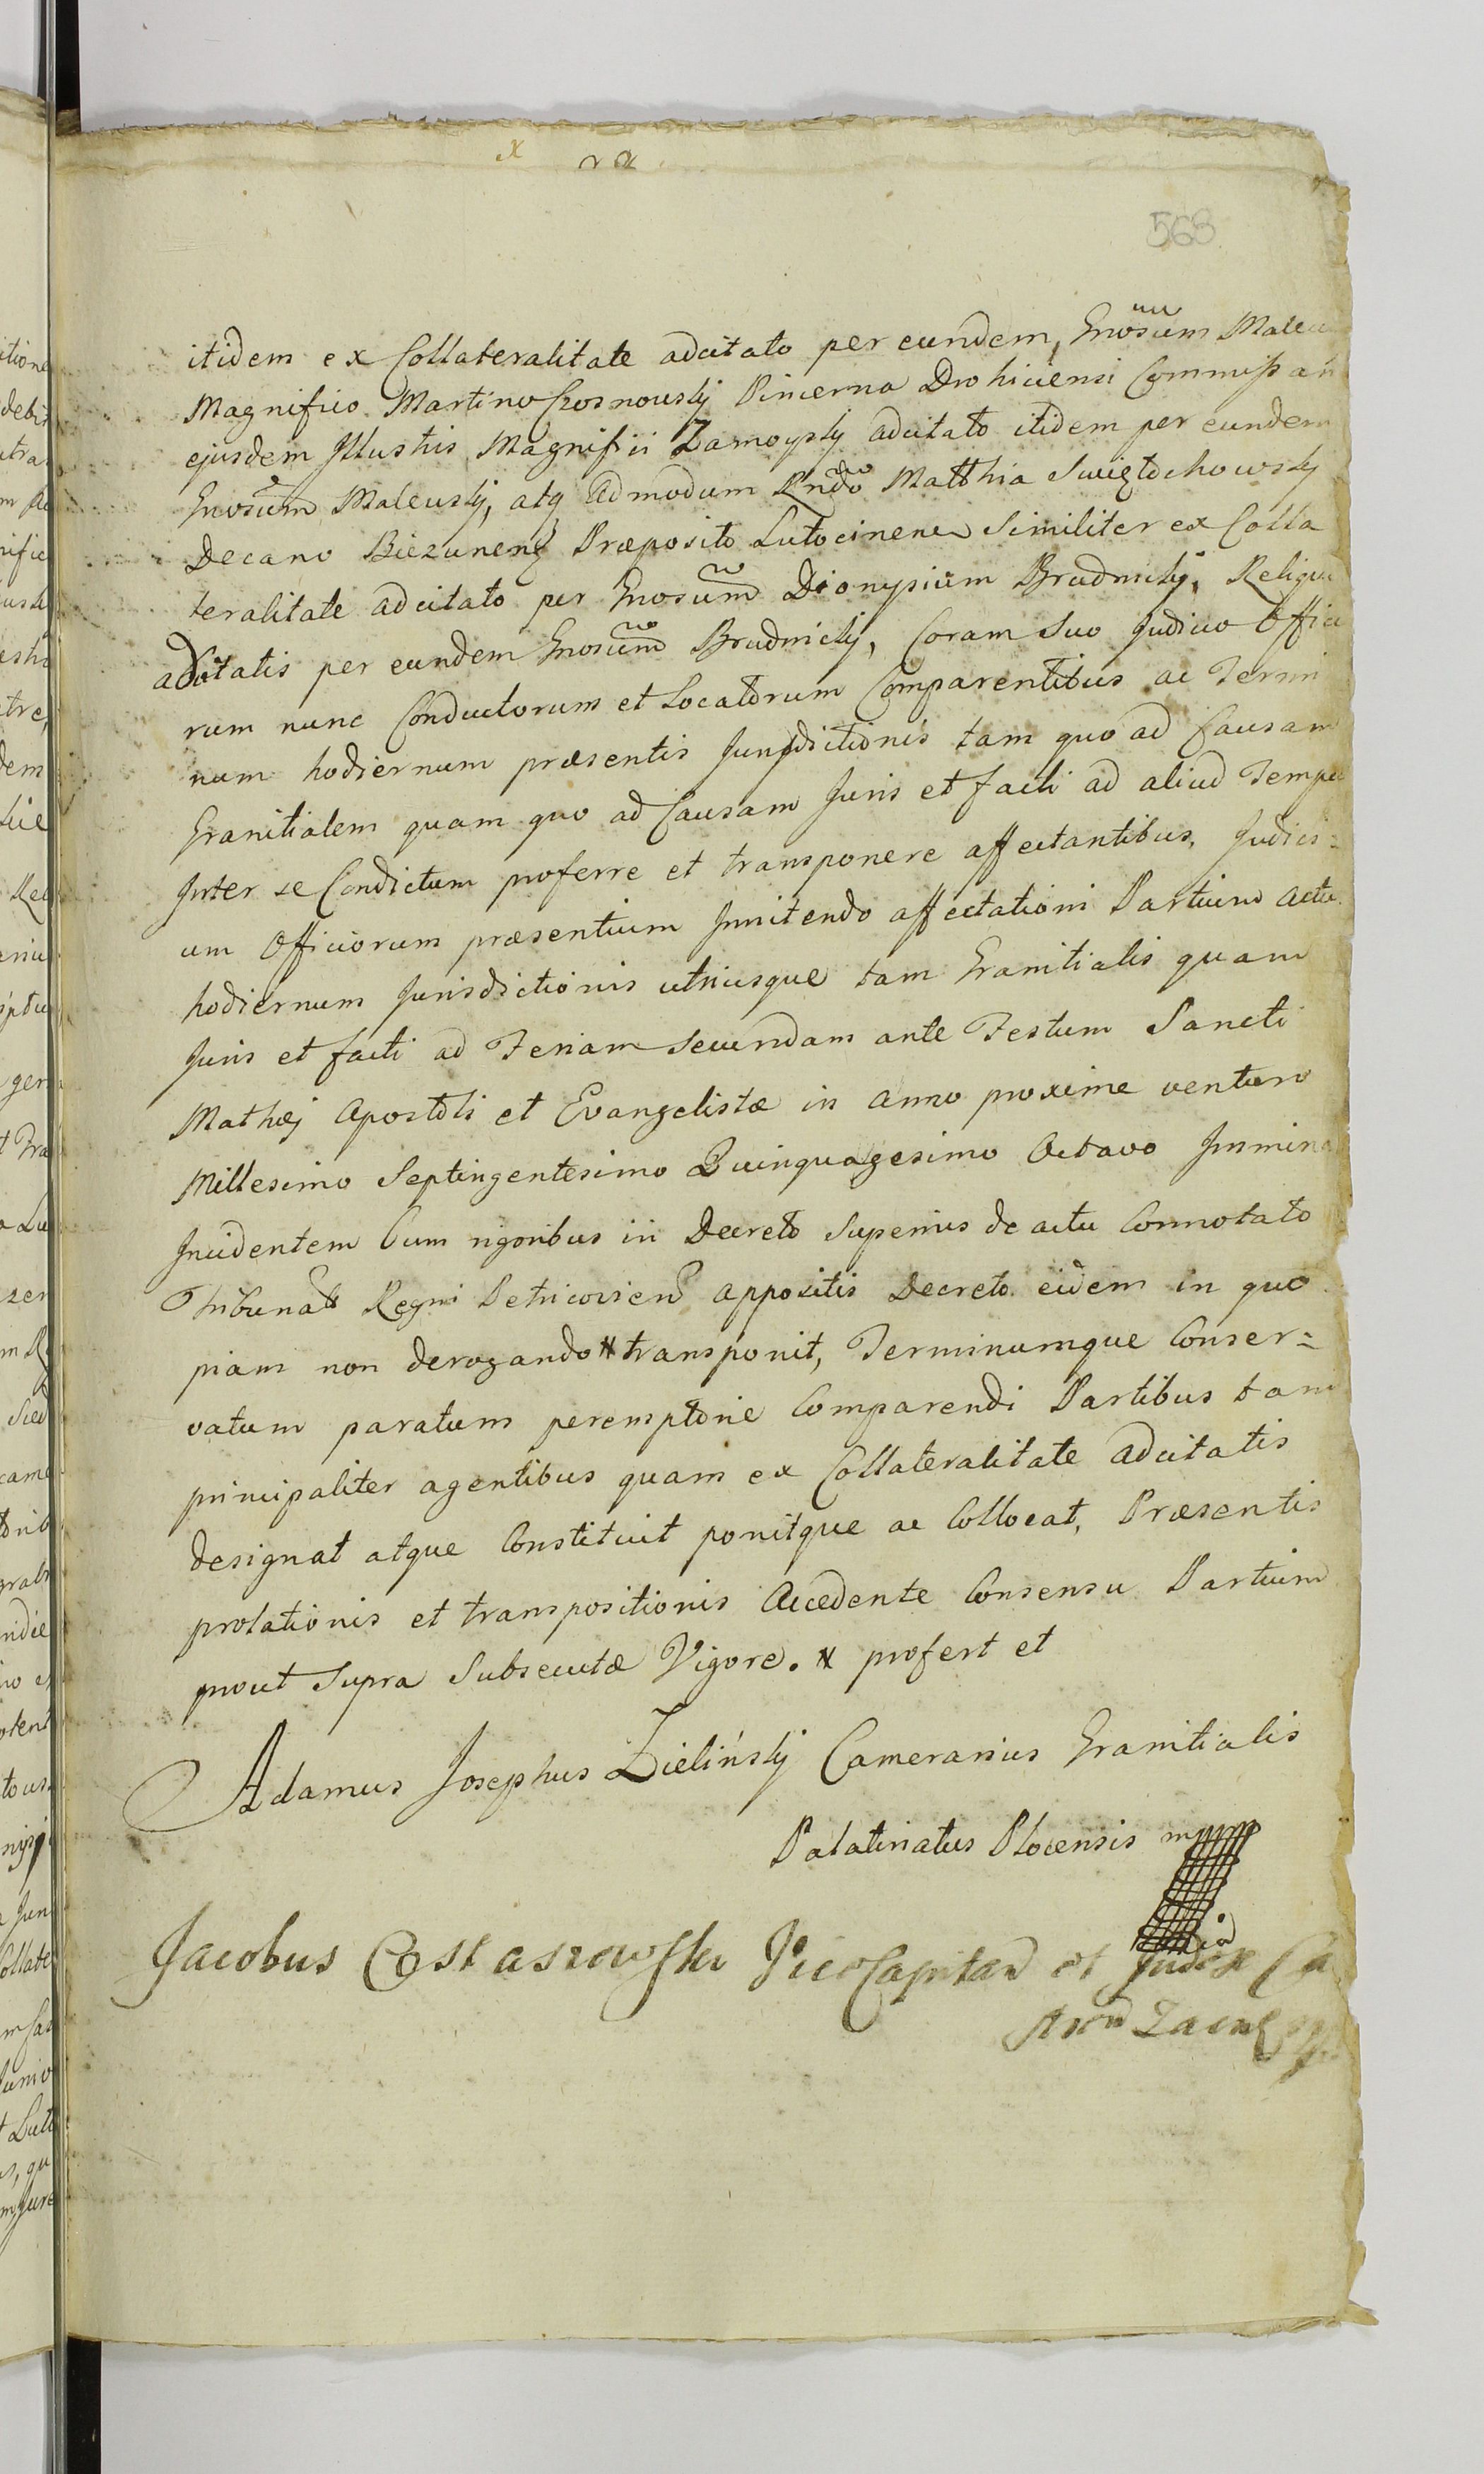 568
itidem ex Collateralitate adcitato per eundem, Gnosum Maleu
Magnifico Martino Czosnowskj Pincerna Drohiciensi Commissar
ejusdem Jllustris Magnifici Zamoyskj adcitato itidem per eundem
Gnosum Maleuskj, atq Admodum Rndo Matthia Swiętochowskj
Decano Biezunens Præposito Lutocinens Similiter ex Colla
teralitate adcitato per Gnosum Dionysium Brudnickj, Reliqui
adcitatis per eundem Gnosum Brudnickj, Coram Suo Judicio Officio
rum nunc Conductorum et Locatorum Comparentibus ac Termi
num hodiernum præsentis Jurisdictionis tam quo ad Causam
Granitialem quam quo ad Causam Juris et facti ad aliud Tempus
Jnter se Condictum proferre et transponere affectantibus, Judici=
um Officiorum præsentium Jnnitendo affectationi Partium actu
hodiernum Jurisdictionis utriusque tam Granitialis quam
Juris et facti ad Feriam Secundam ante Festum Sancti
Mathæj Apostoli et Evangelistæ in Anno proxime venturo
Millesimo Septingentesimo Quinquagesimo Octavo Jmmin
Jncidentem Cum rigoribus in Decreto Superius de actu Connotato
Tribunals Regni Petricovien appositis Decreto eidem in quo
piam non derogando # transponit, Terminumque Conser=
vatum paratum peremptorie Comparendi Partibus tam
principaliter agentibus quam ex Collateralitate adcitatis
designat atque Constituit ponitque ac Collocat, Præsentis
prolationis et transpositionis Accedente Consensu Partium
prout Supra Subsecutæ Vigore. # profert et
Adamus Josephus Zielińskj Camerarius Granitialis
Palatinatus Plocensis mppp
Jacobus Costaszewski ViceCapitan et Judex Ca